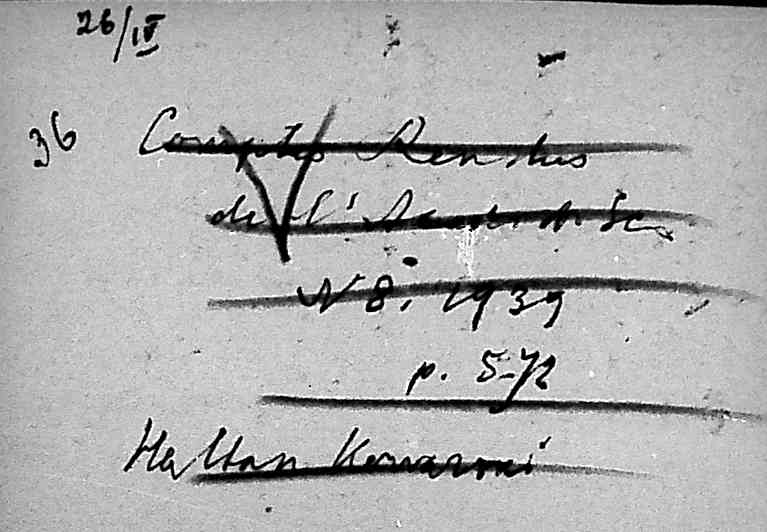 26/IV
36 Comptes Rendus
de l'Acad. d. Sc.
N 8, 1939
p. 572
Halban Kowarski